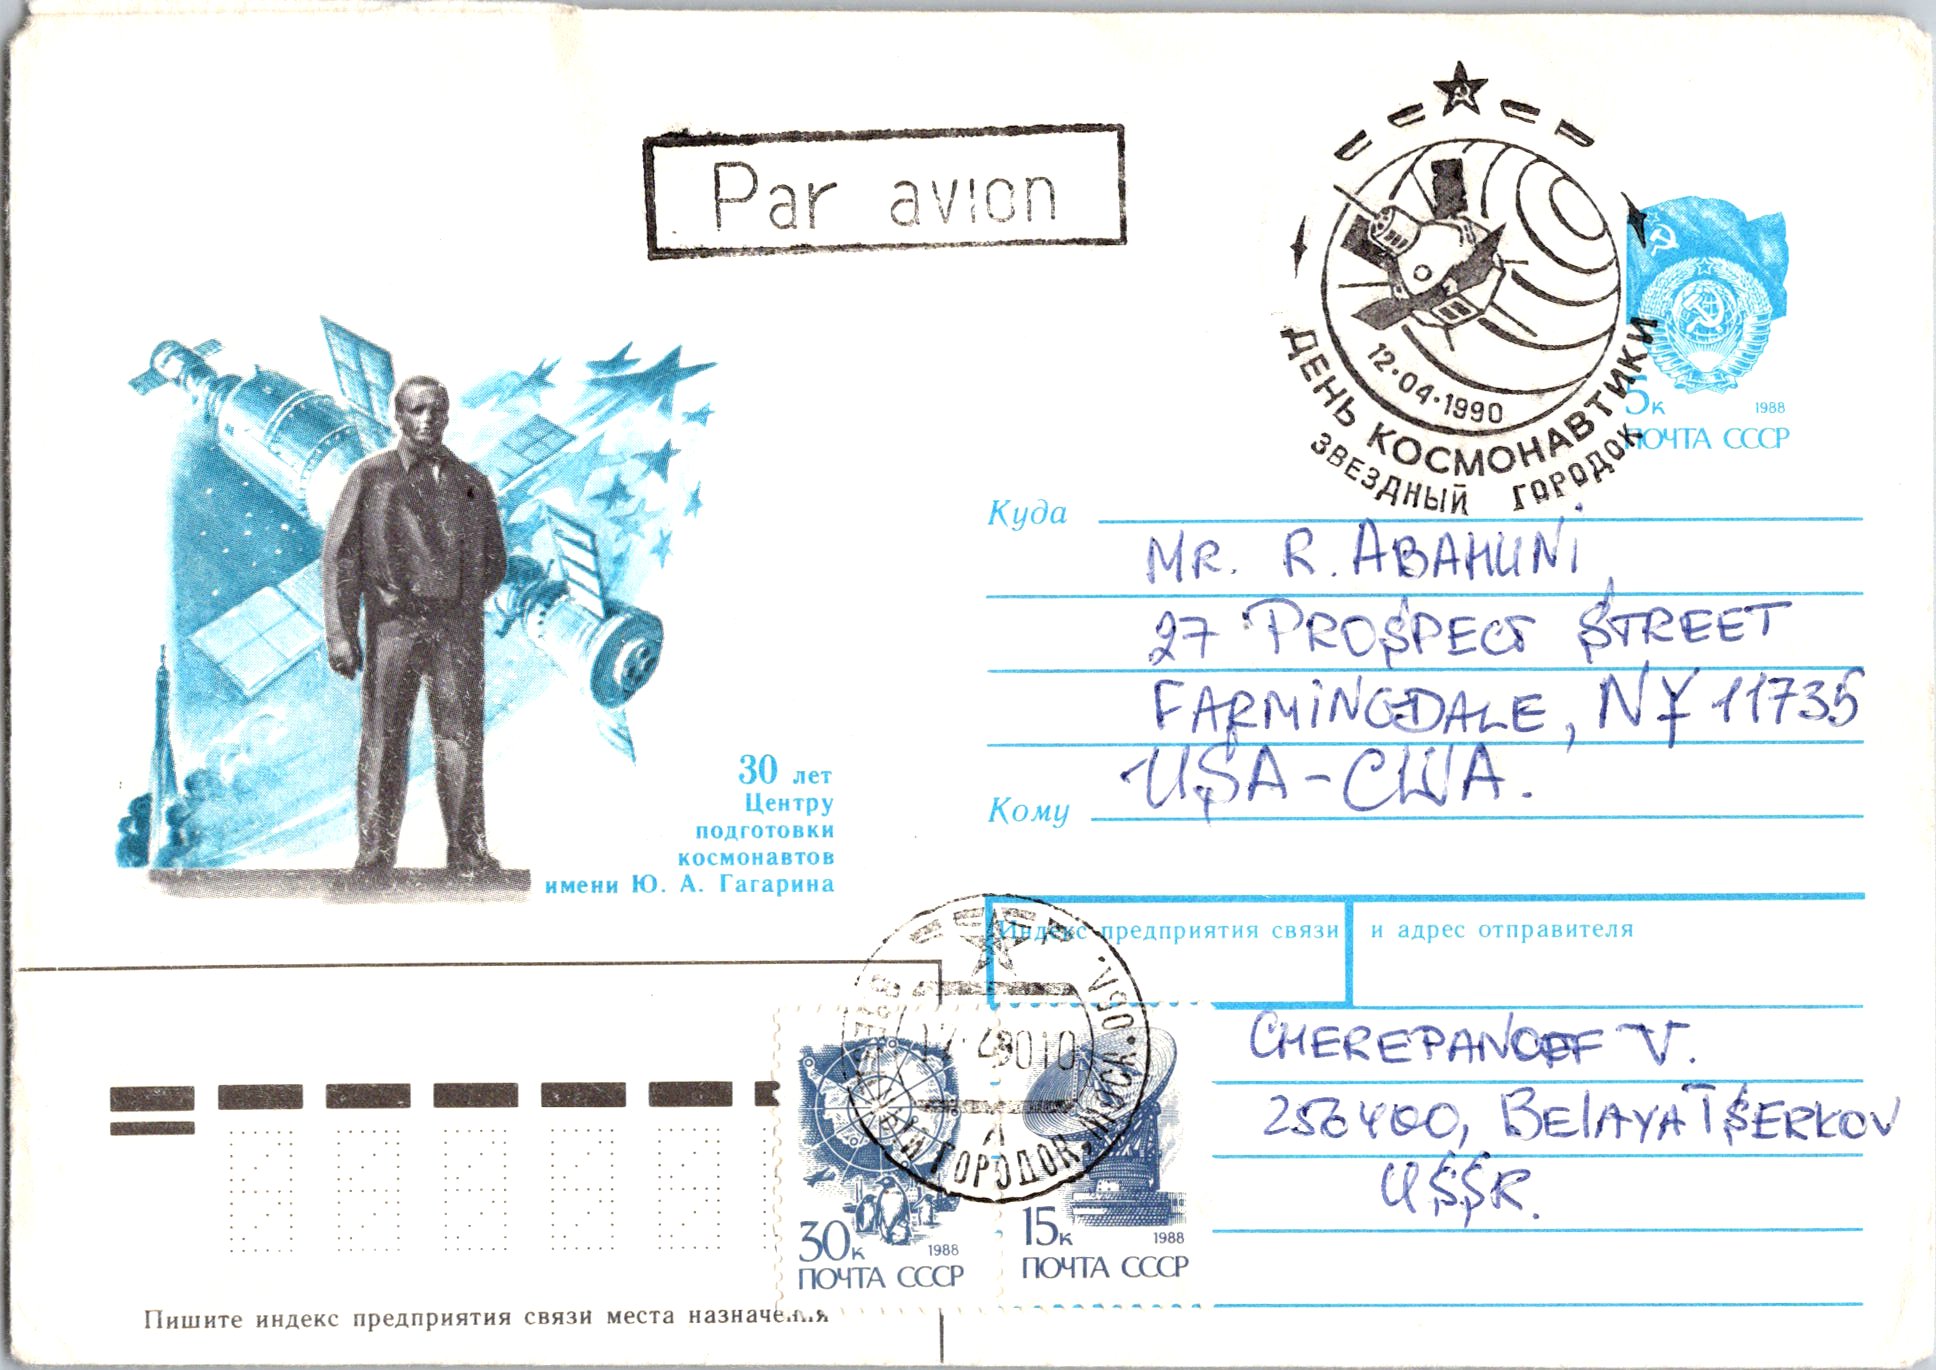 Par avion
СССР
12·04·1990
ДЕНЬ КОСМОНАВТИКИ
ЗВЕЗДНЫЙ ГОРОДОК
5к 1988
ПОЧТА СССР
30 лет
Центру
подготовки
космонавтов
имени Ю. А. Гагарина
Куда
MR. R. ABAHUNI
27 PROSPECT STREET
FARMINGDALE, NY 11735
USA-США.
Кому
Индекс предприятия связи и адрес отправителя
CHEREPANOFF V.
256400, BELAYA TSERKOV
USSR.
СССР
ЗВЕЗДНЫЙ ГОРОДОК МОСК. ОБЛ.
30к 1988
ПОЧТА СССР
15к 1988
ПОЧТА СССР
Пишите индекс предприятия связи места назначения